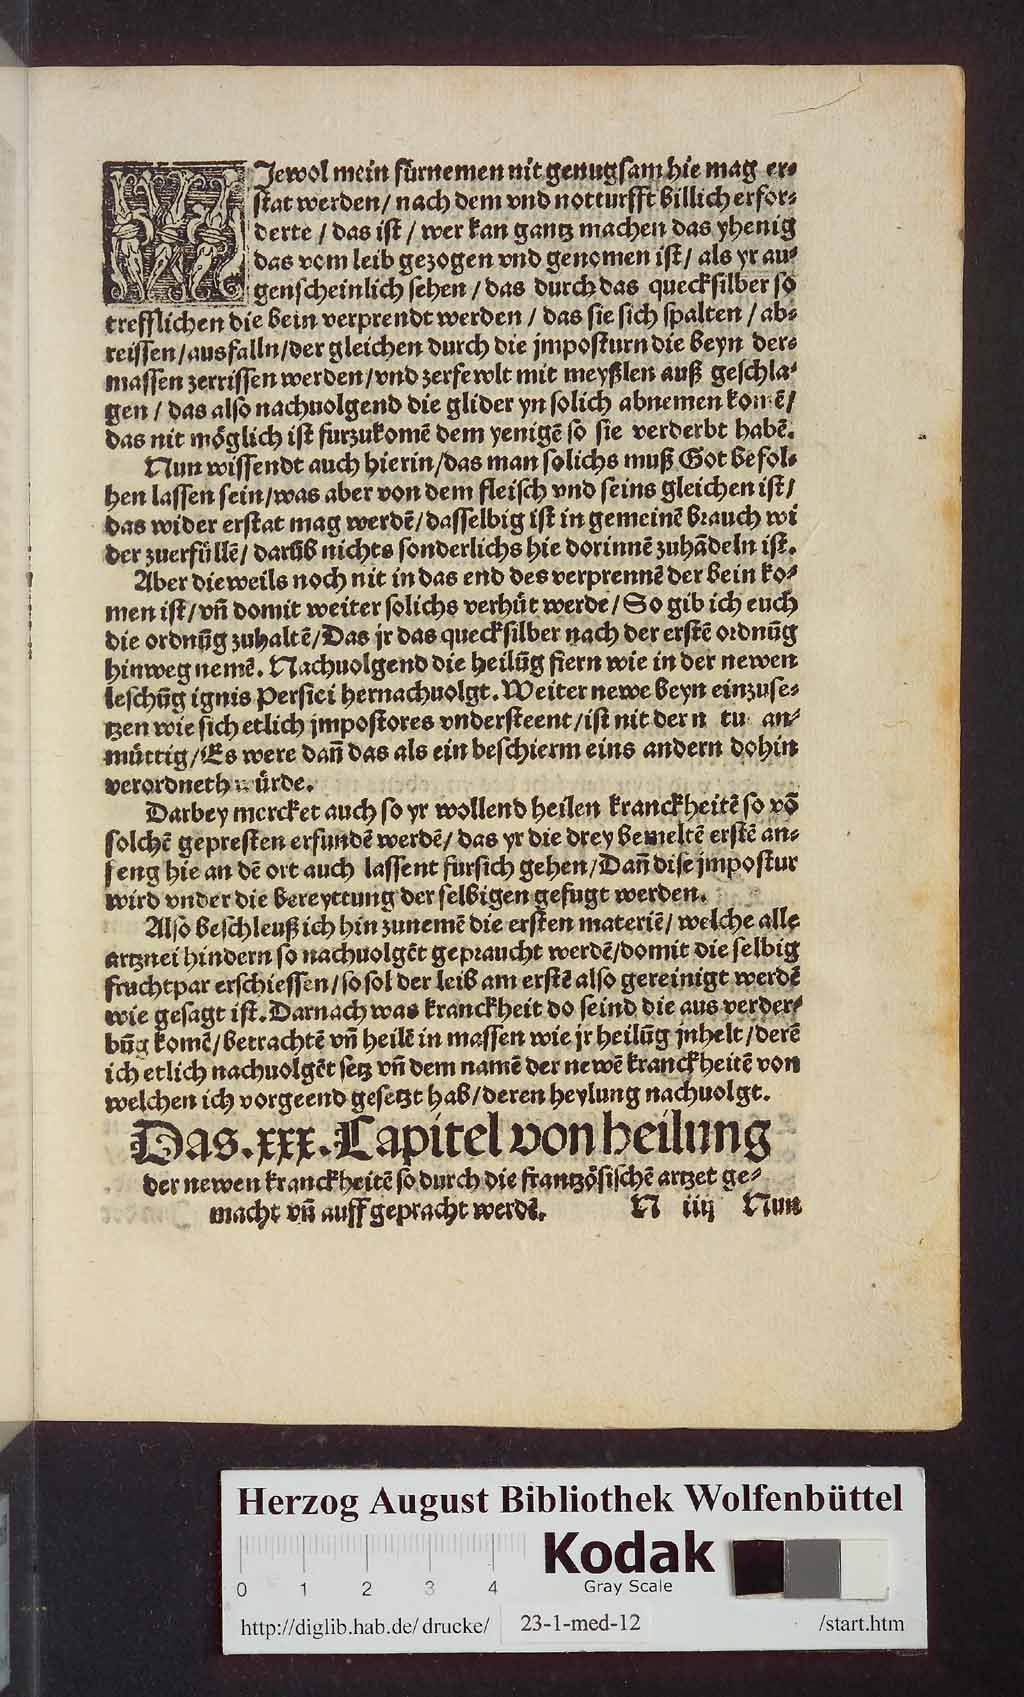 WJewol mein fürnemen nit genugsam hie mag er⸗
stat werden / nach dem vnd notturfft billich erfor⸗
derte / das ist / wer kan gantz machen das yhenig
das vom leib gezogen vnd genomen ist / als yr au⸗
genscheinlich sehen / das durch das quecksilber so
trefflichen die bein verprendt werden / das sie sich spalten / ab⸗
reissen / ausfalln / der gleichen durch die jmposturn die beyn der⸗
massen zerrissen werden / vnd zerfewlt mit meyßlen auß geschla⸗
gen / das also nachuolgend die glider yn solich abnemen komē /
das nit möglich ist furzukomē dem yenigē so sie verderbt habē.
Nun wissendt auch hierin / das man solichs muß Got befol⸗
hen lassen sein / was aber von dem fleisch vnd seins gleichen ist /
das wider erstat mag werdē / dasselbig ist in gemeinē brauch wi
der zuerfüllē / darūb nichts sonderlichs hie dorinnē zuhādeln ist.
Aber dieweils noch nit in das end des verprennē der bein ko⸗
men ist / vn̄ domit weiter solichs verhüt werde / So gib ich euch
die ordnūg zuhaltē / Das jr das quecksilber nach der erstē ordnūg
hinweg nemē. Nachuolgend die heilūg fiern wie in der newen
leschūg ignis Persici hernachuolgt. Weiter newe beyn einzuse⸗
tzen wie sich etlich jmpostores vndersteent / ist nit der n tu an⸗
müttig / Es were dan̄ das als ein beschierm eins andern dohin
verordneth würde.
Darbey mercket auch so yr wollend heilen kranckheitē so vō
solchē gepresten erfundē werdē / das yr die drey bemeltē erstē an⸗
feng hie an dē ort auch lassent fursich gehen / Dan̄ dise jmpostur
wird vnder die bereyttung der selbigen gefugt werden.
Also beschleuß ich hin zunemē die ersten materiē / welche alle
artznei hindern so nachuolgēt gepraucht werdē / domit die selbig
fruchtpar erschiessen / so sol der leib am erstē also gereinigt werdē
wie gesagt ist. Darnach was kranckheit do seind die aus verder⸗
būg komē / betrachtē vn̄ heilē in massen wie jr heilūg jnhelt / derē
ich etlich nachuolgēt setz vn̄ dem namē der newē kranckheitē von
welchen ich vorgeend gesetzt hab / deren heylung nachuolgt.
Das .xxx. Capitel von heilung
der newen kranckheitē so durch die frantzösischē artzet ge⸗
macht vn̄ auff gepracht werdē. N iiij Nun
Herzog August Bibliothek Wolfenbüttel
0 1 2 3 4
Kodak
Gray Scale
http://diglib.hab.de/drucke/ 23-1-med-12 /start.htm